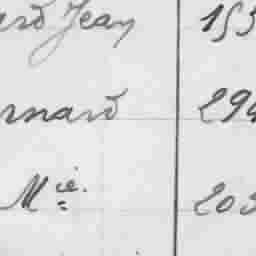 ard Jean 153
rnard 294
Mie. 203